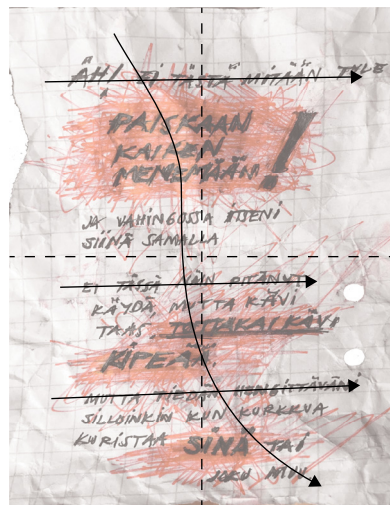 ÄH! EI TÄSTÄ MITÄÄN TULE
PAISKAAN
KAIKEN
MENEMÄÄN!
JA VAHINGOSSA ITSENI
SIINÄ SAMALLA
EI TÄSSÄ NÄIN PITÄNYT
KÄYDÄ MUTTA KÄVI
TAAS. TOTTAKAI KÄVI
KIPEÄÄ
MUTTA TIEDÄN HENGITTÄVÄNI
SILLOINKIN KUN KURKKUA
KURISTAA SINÄ TAI
JOKU MUU